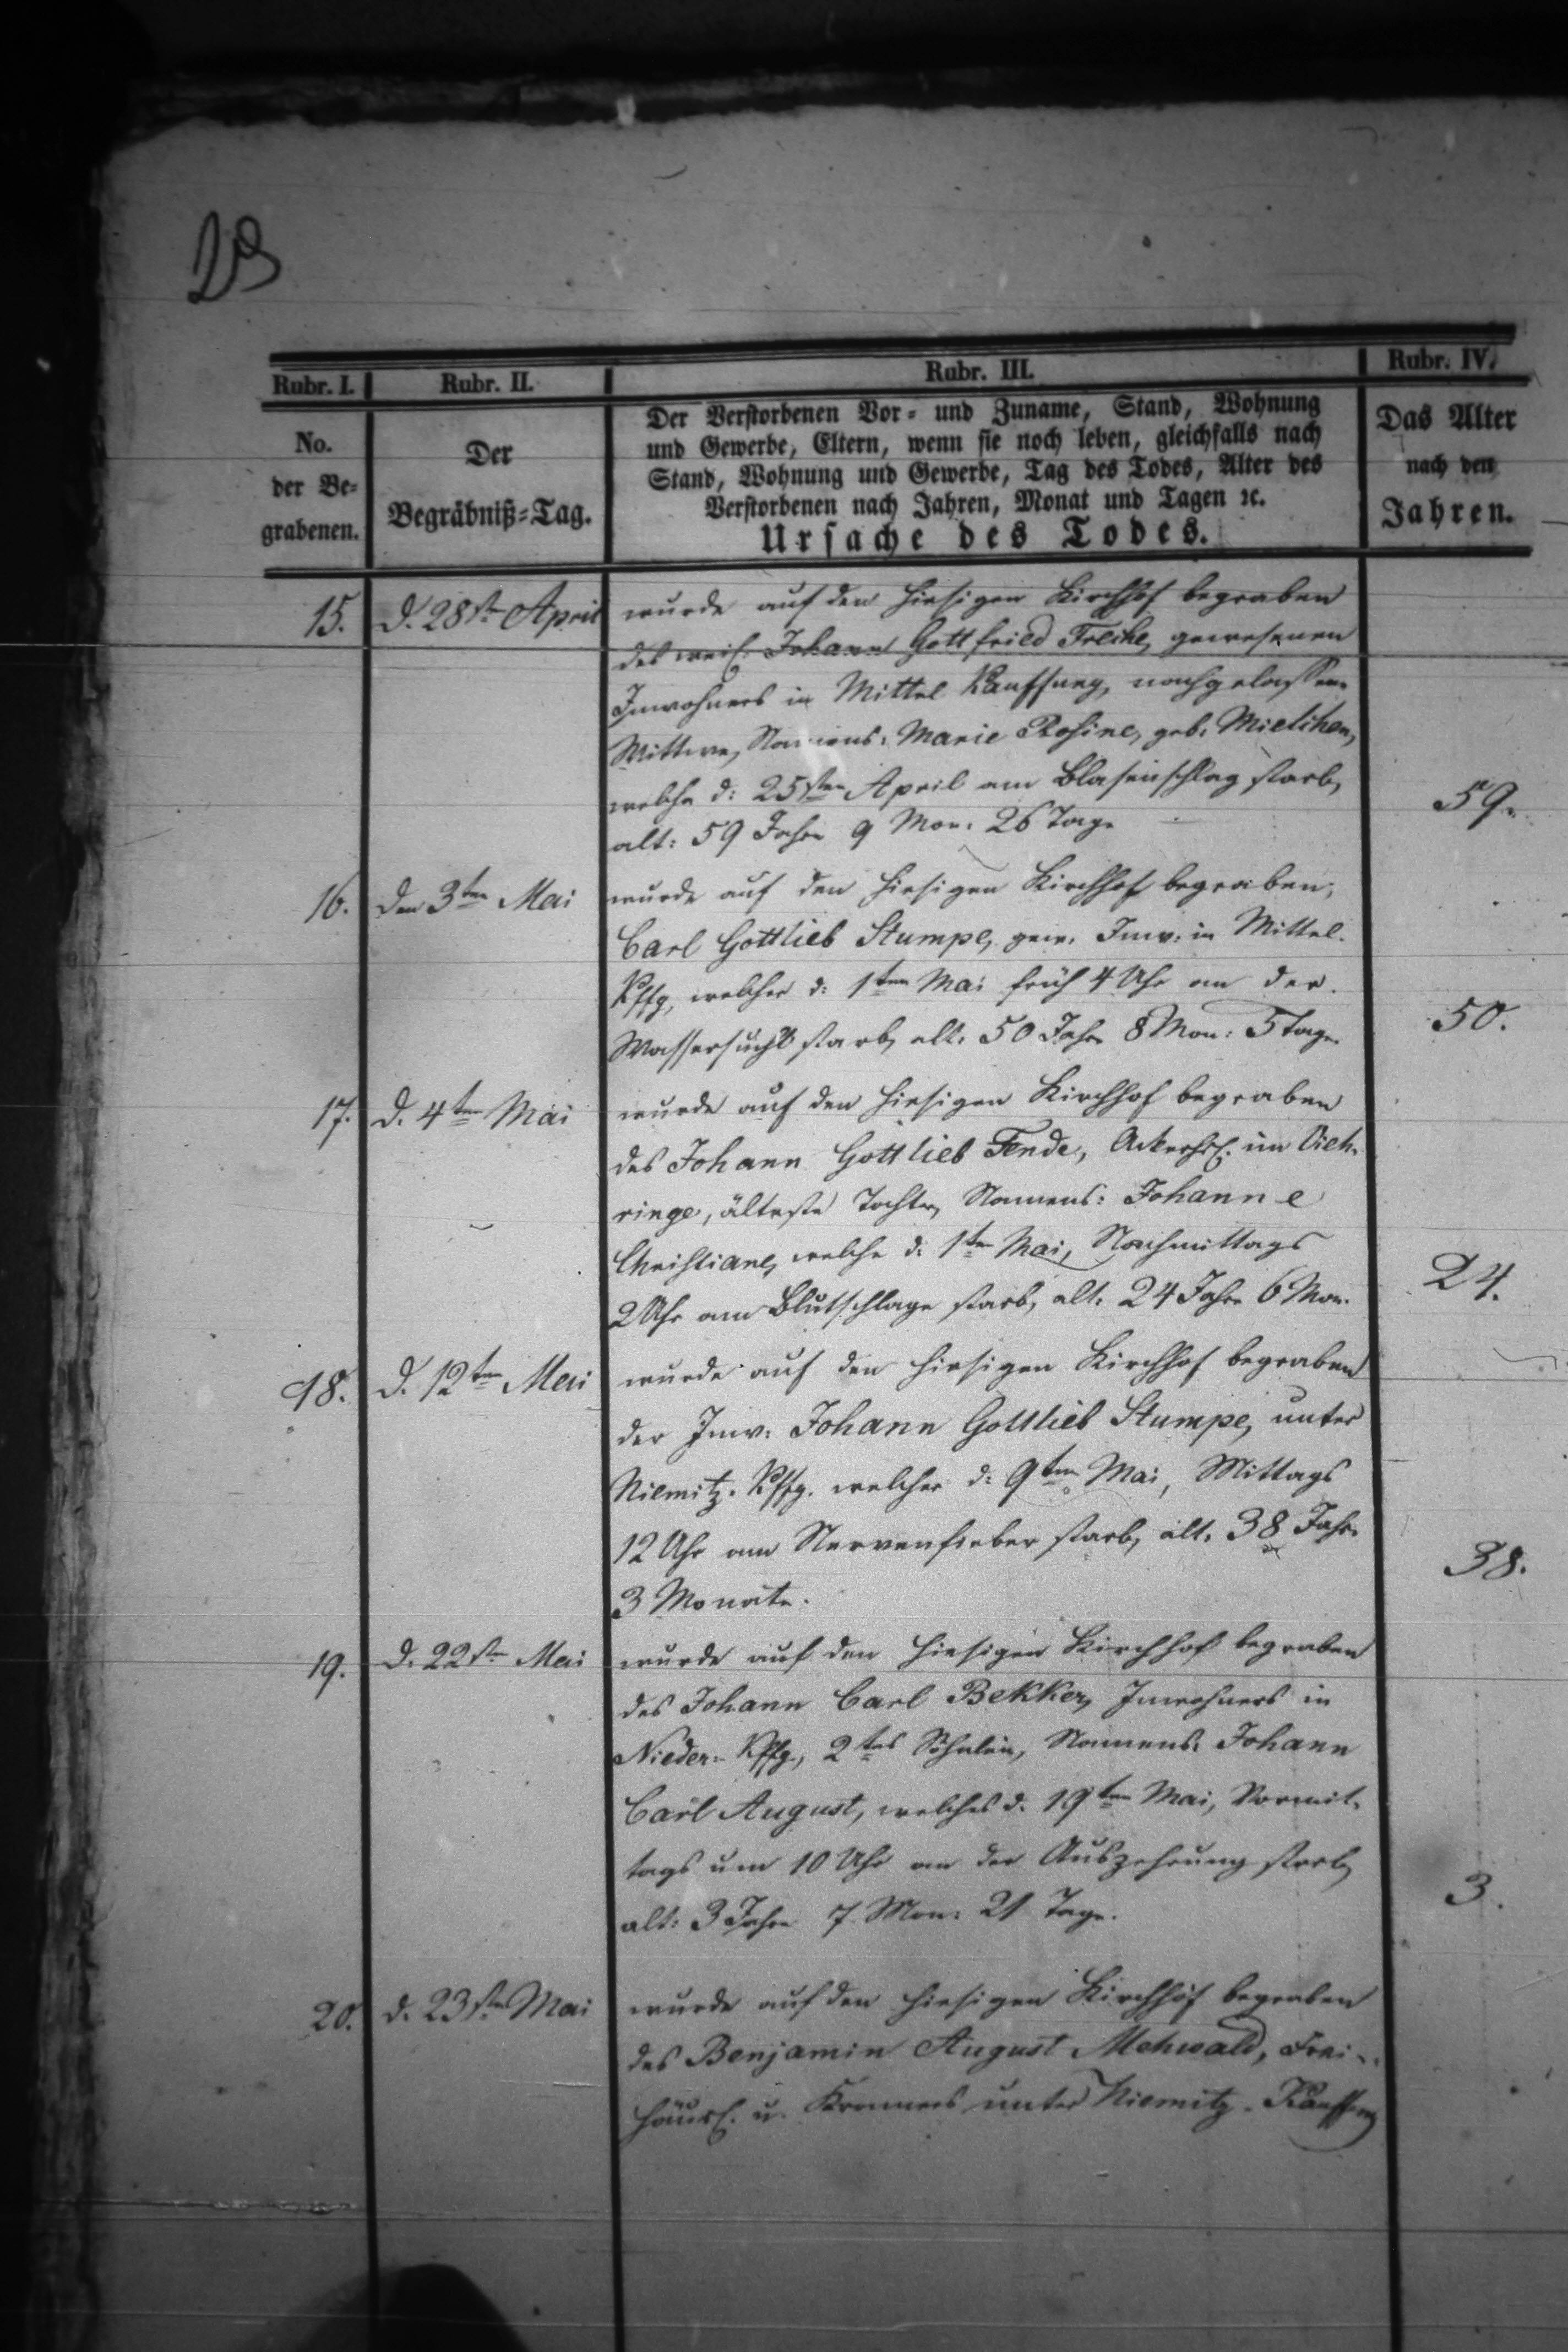 Rubr. I. Rubr. II. Rubr. III. Rubr. IV.
No.
der Be-
grabenen.
Der
Begräbniß-Tag.
Der Verstorbenen Vor- und Zuname, Stand, Wohnung
und Gewerbe, Eltern, wenn sie noch leben, gleichfalls nach
Stand, Wohnung und Gewerbe, Tag des Todes, Alter des
Verstorbenen nach Jahren, Monat und Tagen ꝛc.
Ursache des Todes.
Das Alter
nach den
Jahren.
15. d. 28st. April wurde auf den hiesigen Kirchhof begraben
des weil. Johann Gottfried Freche, gewesenen
Inwohners in Mittel Kauffung, nachgelassene
Wittwe, Namens: Marie Rosine, geb. Mielchen,
welche d: 25sten April am Blasenschlag starb,
alt: 59 Jahre 9 Mon: 26 Tage 59.
16. den 3ten Mai wurde auf den hiesigen Kirchhof begraben,
Carl Gottlieb Stumpe, gew. Inw. in Mittel-
Kffg, welcher d: 1ten Mai früh 4 Uhr an der
Wassersucht starb, alt: 50 Jahr 8 Mon: 5 Tage. 50.
17. d. 4ten Mai wurde auf den hiesigen Kirchhof begraben
des Johann Gottlieb Fende, Ackerhsl. im Vieh-
ringe, älteste Tochter, Namens: Johanne
Christiane, welche d. 1ten Mai, Nachmittags
2 Uhr am Blutschlage starb, alt: 24 Jahre 6 Mon. 24.
18. d. 12ten Mai wurde auf den hiesigen Kirchhof begraben
der Inw: Johann Gottlieb Stumpe, unter
Niemitz-Kffg. welcher d: 9ten Mai, Mittags
12 Uhr am Nervenfieber starb, alt. 38 Jahr
3 Monate. 38.
19. d. 22st. Mai wurde auf den hiesigen Kirchhof begraben
des Johann Carl Bekker, Inwohners in
Nieder-Kffg., 2tes Söhnlein, Namens: Johann
Carl August, welches d. 19ten Mai, Vormit-
tags um 10 Uhr an der Auszehrung starb,
alt: 3 Jahre 7 Mon: 21 Tage. 3.
20. d. 23sten Mai wurde auf den hiesigen Kirchhof begraben
des Benjamin August Mehwald, Frei-
häusl. u. Kramers unter Niemitz-Kauffung